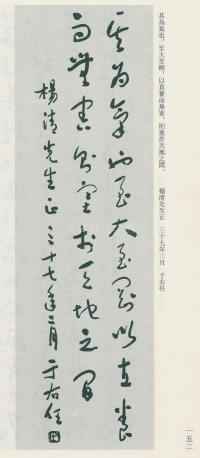 其為氣也，至大至剛，以直養而無害，則塞於天地之間。　楊清先生正　三十七年二月　于右任
其為氣也至大至剛以直養
而無害則塞於天地之間
楊清先生正 三十七年二月 于右任
一五二